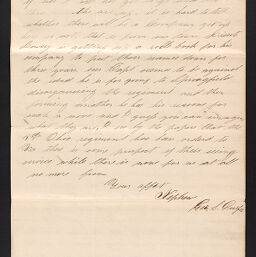 it is hard to tell
whether there will be a Company got up
or not, that is from our town. Lieut
is getting up a roll book for his
company to put their names down for
three years. our Capt seems to be against
the idea he is for going to Springfield
disorganizing the regiment and then
forming another he has his reasons for
such a move and I guess you can imagine
what they are. I see by the papers that the
8th Ohio regiment has been ordered to
Va there is some prospect of their seeing
service while there is none for us at all
no more from
Your affct
Nephew
Geo. S.